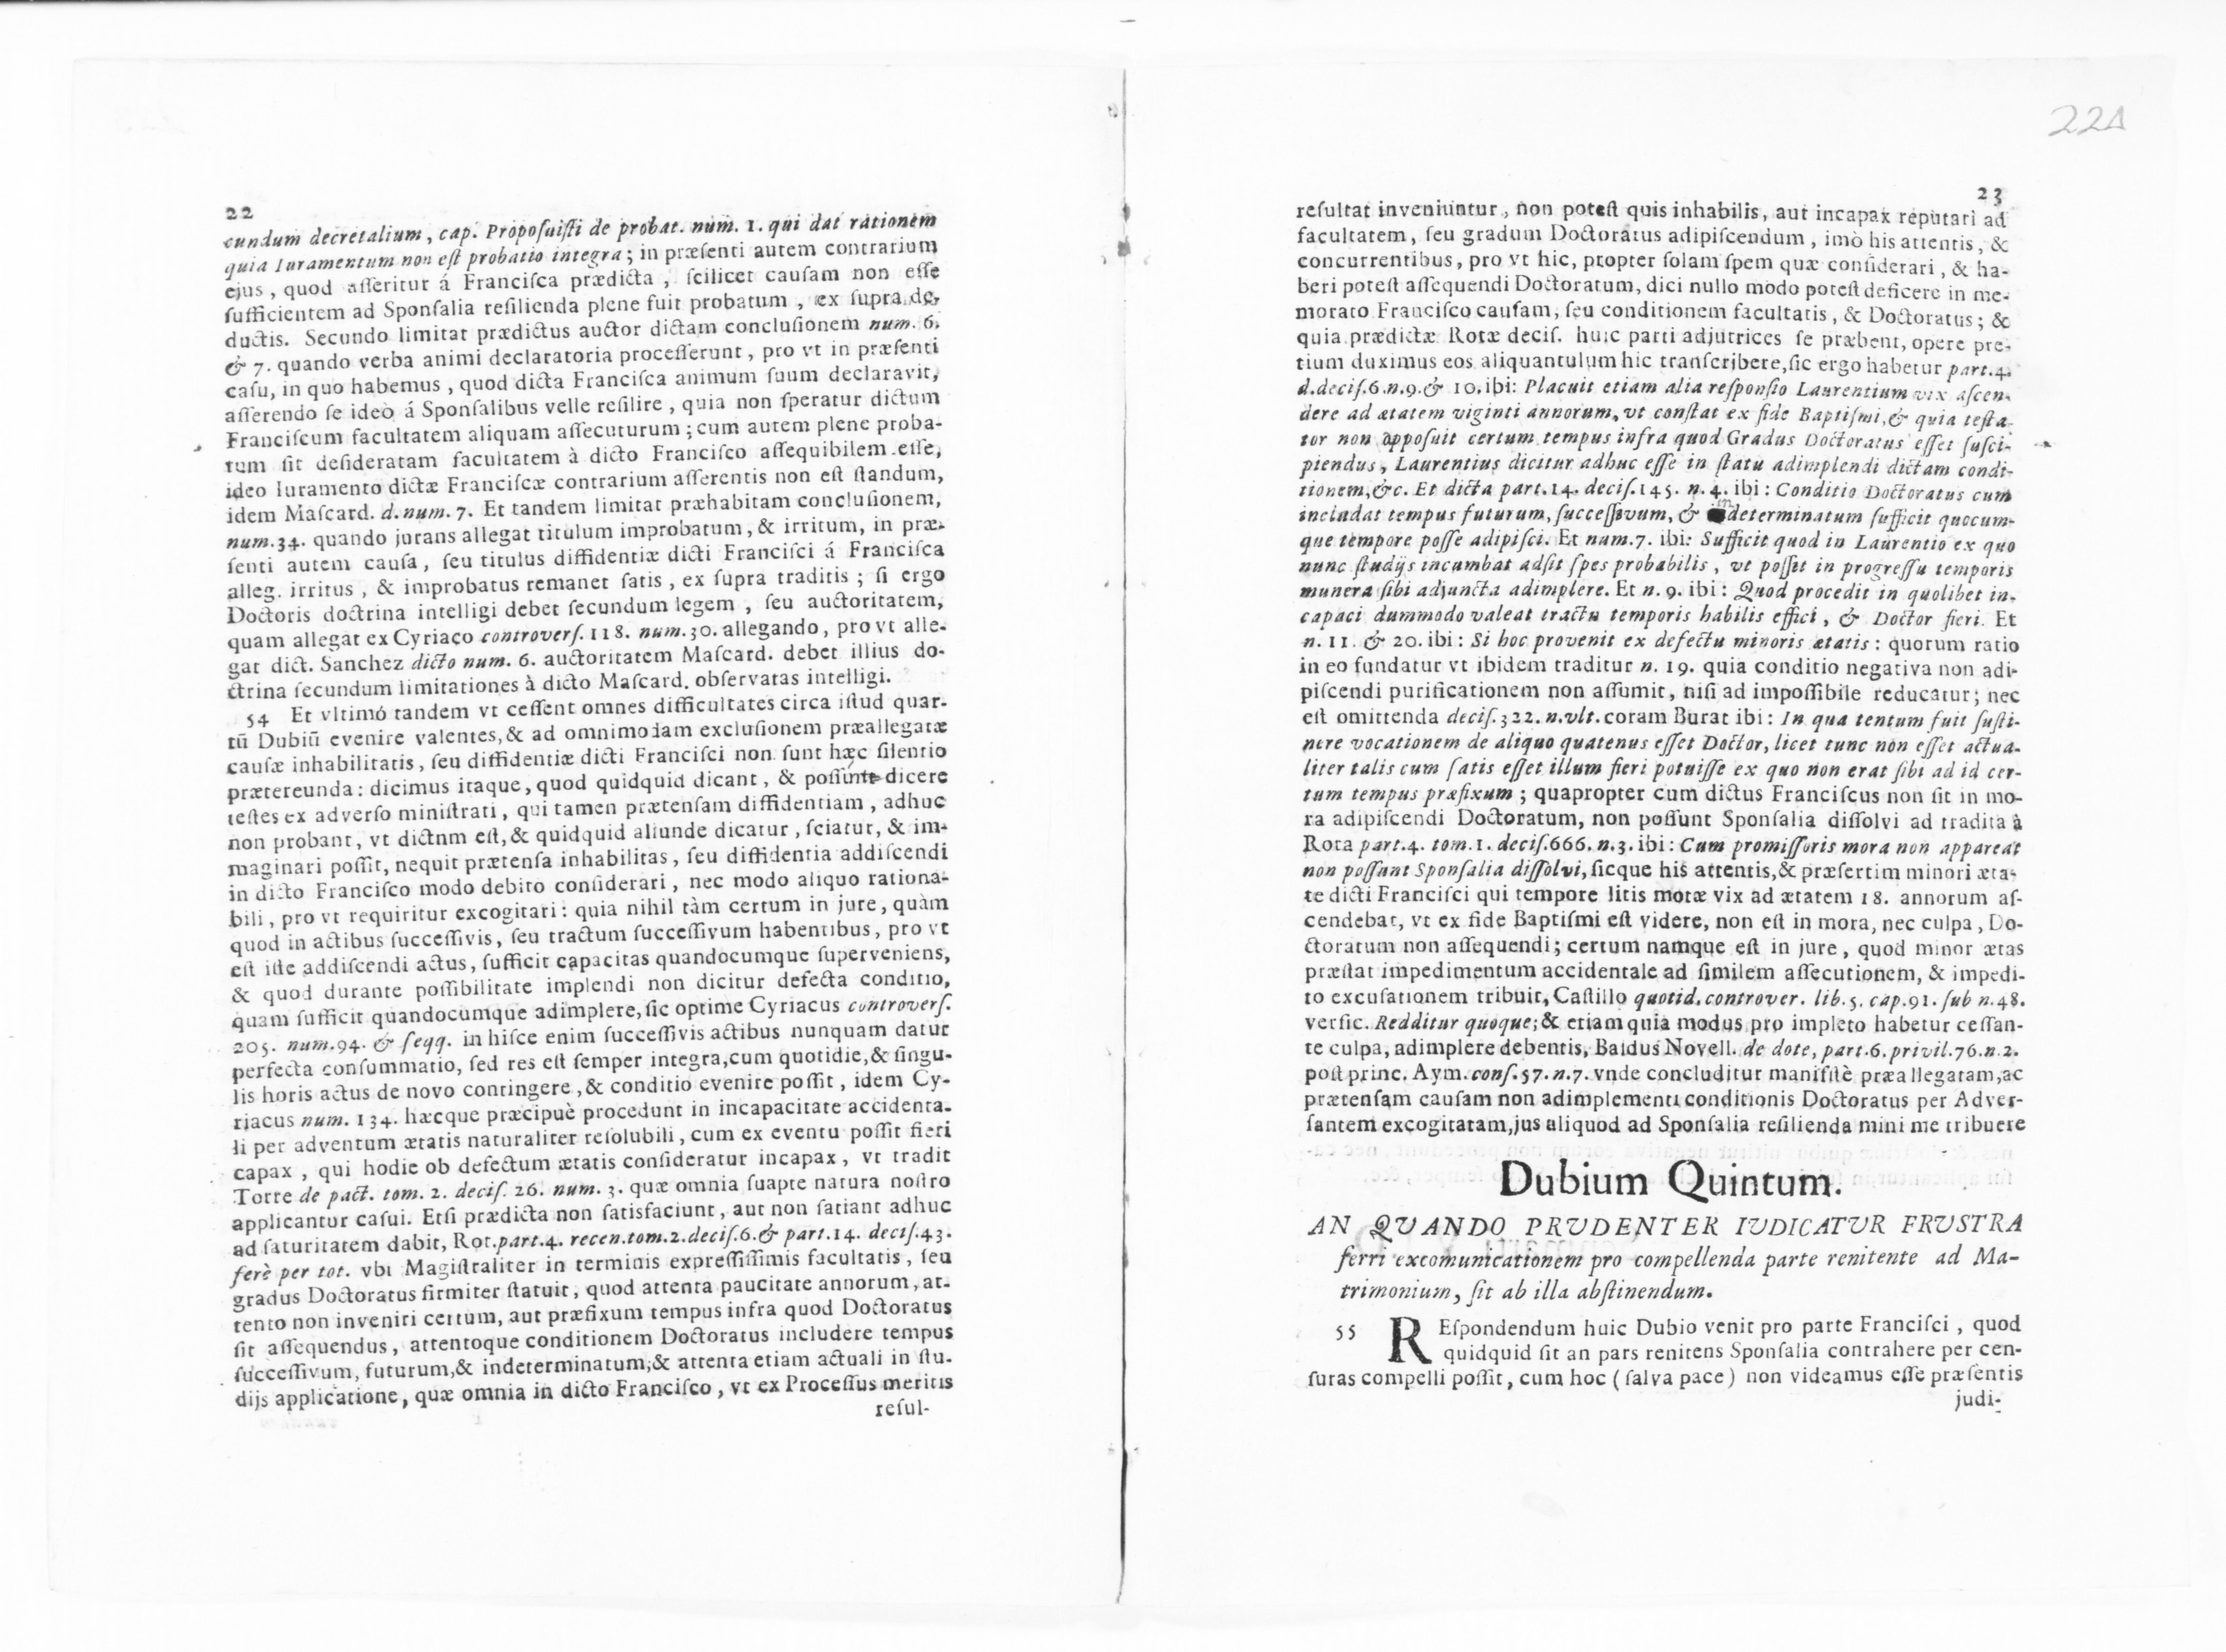 22
cundum decretalium, cap. Propoſuiſti de probat. num. 1. qui dat rationem
quia Iuramentum non eſt probatio integra; in præſenti autem contrarium
ejus, quod aſſeritur á Franciſca prædicta, ſcilicet cauſam non eſſe
ſufficientem ad Sponſalia reſilienda plene fuit probatum, ex ſupra de-
ductis. Secundo limitat prædictus auctor dictam concluſionem num. 6.
& 7. quando verba animi declaratoria proceſſerunt, pro vt in præſenti
caſu, in quo habemus, quod dicta Franciſca animum ſuum declaravit,
aſſerendo ſe ideò á Sponſalibus velle reſilire, quia non ſperatur dictum
Franciſcum facultatem aliquam aſſecuturum; cum autem plene proba-
tum ſit deſideratam facultatem à dicto Franciſco aſſequibilem eſſe,
ideo Iuramento dictæ Franciſcæ contrarium aſſerentis non eſt ſtandum,
idem Maſcard. d. num. 7. Et tandem limitat præhabitam concluſionem,
num. 34. quando jurans allegat titulum improbatum, & irritum, in præ-
ſenti autem cauſa, ſeu titulus diffidentiæ dicti Franciſci á Franciſca
alleg. irritus, & improbatus remanet ſatis, ex ſupra traditis; ſi ergo
Doctoris doctrina intelligi debet ſecundum legem, ſeu auctoritatem,
quam allegat ex Cyriaco controverſ. 118. num. 30. allegando, pro vt alle-
gat dict. Sanchez dicto num. 6. auctoritatem Maſcard. debet illius do-
ctrina ſecundum limitationes à dicto Maſcard. obſervatas intelligi.
54 Et vltimó tandem vt ceſſent omnes difficultates circa iſtud quar-
tũ Dubiũ evenire valentes, & ad omnimodam excluſionem præallegatæ
cauſæ inhabilitatis, ſeu diffidentiæ dicti Franciſci non ſunt hæc ſilentio
prætereunda: dicimus itaque, quod quidquid dicant, & poſſint dicere
teſtes ex adverſo miniſtrati, qui tamen prætenſam diffidentiam, adhuc
non probant, vt dictnm eſt, & quidquid aliunde dicatur, ſciatur, & im-
maginari poſſit, nequit prætenſa inhabilitas, ſeu diffidentia addiſcendi
in dicto Franciſco modo debito conſiderari, nec modo aliquo rationa-
bili, pro vt requiritur excogitari: quia nihil tàm certum in jure, quàm
quod in actibus ſucceſſivis, ſeu tractum ſucceſſivum habentibus, pro vt
eſt iſte addiſcendi actus, ſufficit capacitas quandocumque ſuperveniens,
& quod durante poſſibilitate implendi non dicitur defecta conditio,
quam ſufficit quandocumque adimplere, ſic optime Cyriacus controverſ.
205. num. 94. & ſeqq. in hiſce enim ſucceſſivis actibus nunquam datur
perfecta conſummatio, ſed res eſt ſemper integra, cum quotidie, & ſingu-
lis horis actus de novo contingere, & conditio evenire poſſit, idem Cy-
riacus num. 134. hæcque præcipuè procedunt in incapacitate accidenta-
li per adventum ætatis naturaliter reſolubili, cum ex eventu poſſit fieri
capax, qui hodie ob defectum ætatis conſideratur incapax, vt tradit
Torre de pact. tom. 2. deciſ. 26. num. 3. quæ omnia ſuapte natura noſtro
applicantur caſui. Etſi prædicta non ſatisfaciunt, aut non ſatiant adhuc
ad ſaturitatem dabit, Rot. part. 4. recen. tom. 2. deciſ. 6. & part. 14. deciſ. 43.
ferè per tot. vbi Magiſtraliter in terminis expreſſiſſimis facultatis, ſeu
gradus Doctoratus firmiter ſtatuit, quod attenta paucitate annorum, at-
tento non inveniri certum, aut præfixum tempus infra quod Doctoratus
ſit aſſequendus, attentoque conditionem Doctoratus includere tempus
ſucceſſivum, futurum, & indeterminatum; & attenta etiam actuali in ſtu-
dijs applicatione, quæ omnia in dicto Franciſco, vt ex Proceſſus meritis
reſul-
22A
23
reſultat inveniuntur, non poteſt quis inhabilis, aut incapax reputari ad
facultatem, ſeu gradum Doctoratus adipiſcendum, imò his attentis, &
concurrentibus, pro vt hic, propter ſolam ſpem quæ conſiderari, & ha-
beri poteſt aſſequendi Doctoratum, dici nullo modo poteſt deficere in me-
morato Franciſco cauſam, ſeu conditionem facultatis, & Doctoratus; &
quia prædictæ Rotæ deciſ. huic parti adjutrices ſe præbent, opere pre-
tium duximus eos aliquantulum hic tranſcribere, ſic ergo habetur part. 4.
d. deciſ. 6. n. 9. & 10. ibi: Placuit etiam alia reſponſio Laurentium vix aſcen-
dere ad ætatem viginti annorum, vt conſtat ex fide Baptiſmi, & quia teſta-
tor non oppoſuit certum tempus infra quod Gradus Doctoratus eſſet ſuſci-
piendus, Laurentius dicitur adhuc eſſe in ſtatu adimplendi dictam condi-
tionem, &c. Et dicta part. 14. deciſ. 145. n. 4. ibi: Conditio Doctoratus cum
includat tempus futurum, ſucceſſivum, & indeterminatum ſufficit quocum-
que tempore poſſe adipiſci. Et num. 7. ibi: Sufficit quod in Laurentio ex quo
nunc ſtudijs incumbat adſit ſpes probabilis, vt poſſit in progreſſu temporis
munera ſibi adjuncta adimplere. Et n. 9. ibi: Quod procedit in quolibet in-
capaci dummodo valeat tractu temporis habilis effici, & Doctor fieri. Et
n. 11. & 20. ibi: Si hoc provenit ex defectu minoris ætatis: quorum ratio
in eo fundatur vt ibidem traditur n. 19. quia conditio negativa non adi-
piſcendi purificationem non aſſumit, niſi ad impoſſibile reducatur; nec
eſt omittenda deciſ. 322. n. vlt. coram Burat ibi: In qua tentum fuit ſuſti-
nere vocationem de aliquo quatenus eſſet Doctor, licet tunc non eſſet actua-
liter talis cum ſatis eſſet illum fieri potuiſſe ex quo non erat ſibi ad id cer-
tum tempus præfixum; quapropter cum dictus Franciſcus non ſit in mo-
ra adipiſcendi Doctoratum, non poſſunt Sponſalia diſſolvi ad tradita à
Rota part. 4. tom. 1. deciſ. 666. n. 3. ibi: Cum promiſſoris mora non appareat
non poſſunt Sponſalia diſſolvi, ſicque his attentis, & præſertim minori æta-
te dicti Franciſci qui tempore litis motæ vix ad ætatem 18. annorum aſ-
cendebat, vt ex fide Baptiſmi eſt videre, non eſt in mora, nec culpa, Do-
ctoratum non aſſequendi; certum namque eſt in jure, quod minor ætas
præſtat impedimentum accidentale ad ſimilem aſſecutionem, & impedi-
to excuſationem tribuit, Caſtillo quotid. controver. lib. 5. cap. 91. ſub n. 48.
verſic. Redditur quoque; & etiam quia modus pro impleto habetur ceſſan-
te culpa, adimplere debentis, Baldus Novell. de dote, part. 6. privil. 76. n. 2.
poſt princ. Aym. conſ. 57. n. 7. vnde concluditur manifſtè præallegatam, ac
prætenſam cauſam non adimplementi conditionis Doctoratus per Adver-
ſantem excogitatam, jus aliquod ad Sponſalia reſilienda mini me tribuere
Dubium Quintum.
AN QUANDO PRVDENTER IVDICATVR FRVSTRA
ferri excomunicationem pro compellenda parte renitente ad Ma-
trimonium, ſit ab illa abſtinendum.
55 REſpondendum huic Dubio venit pro parte Franciſci, quod
quidquid ſit an pars renitens Sponſalia contrahere per cen-
ſuras compelli poſſit, cum hoc (ſalva pace) non videamus eſſe præſentis
judi-